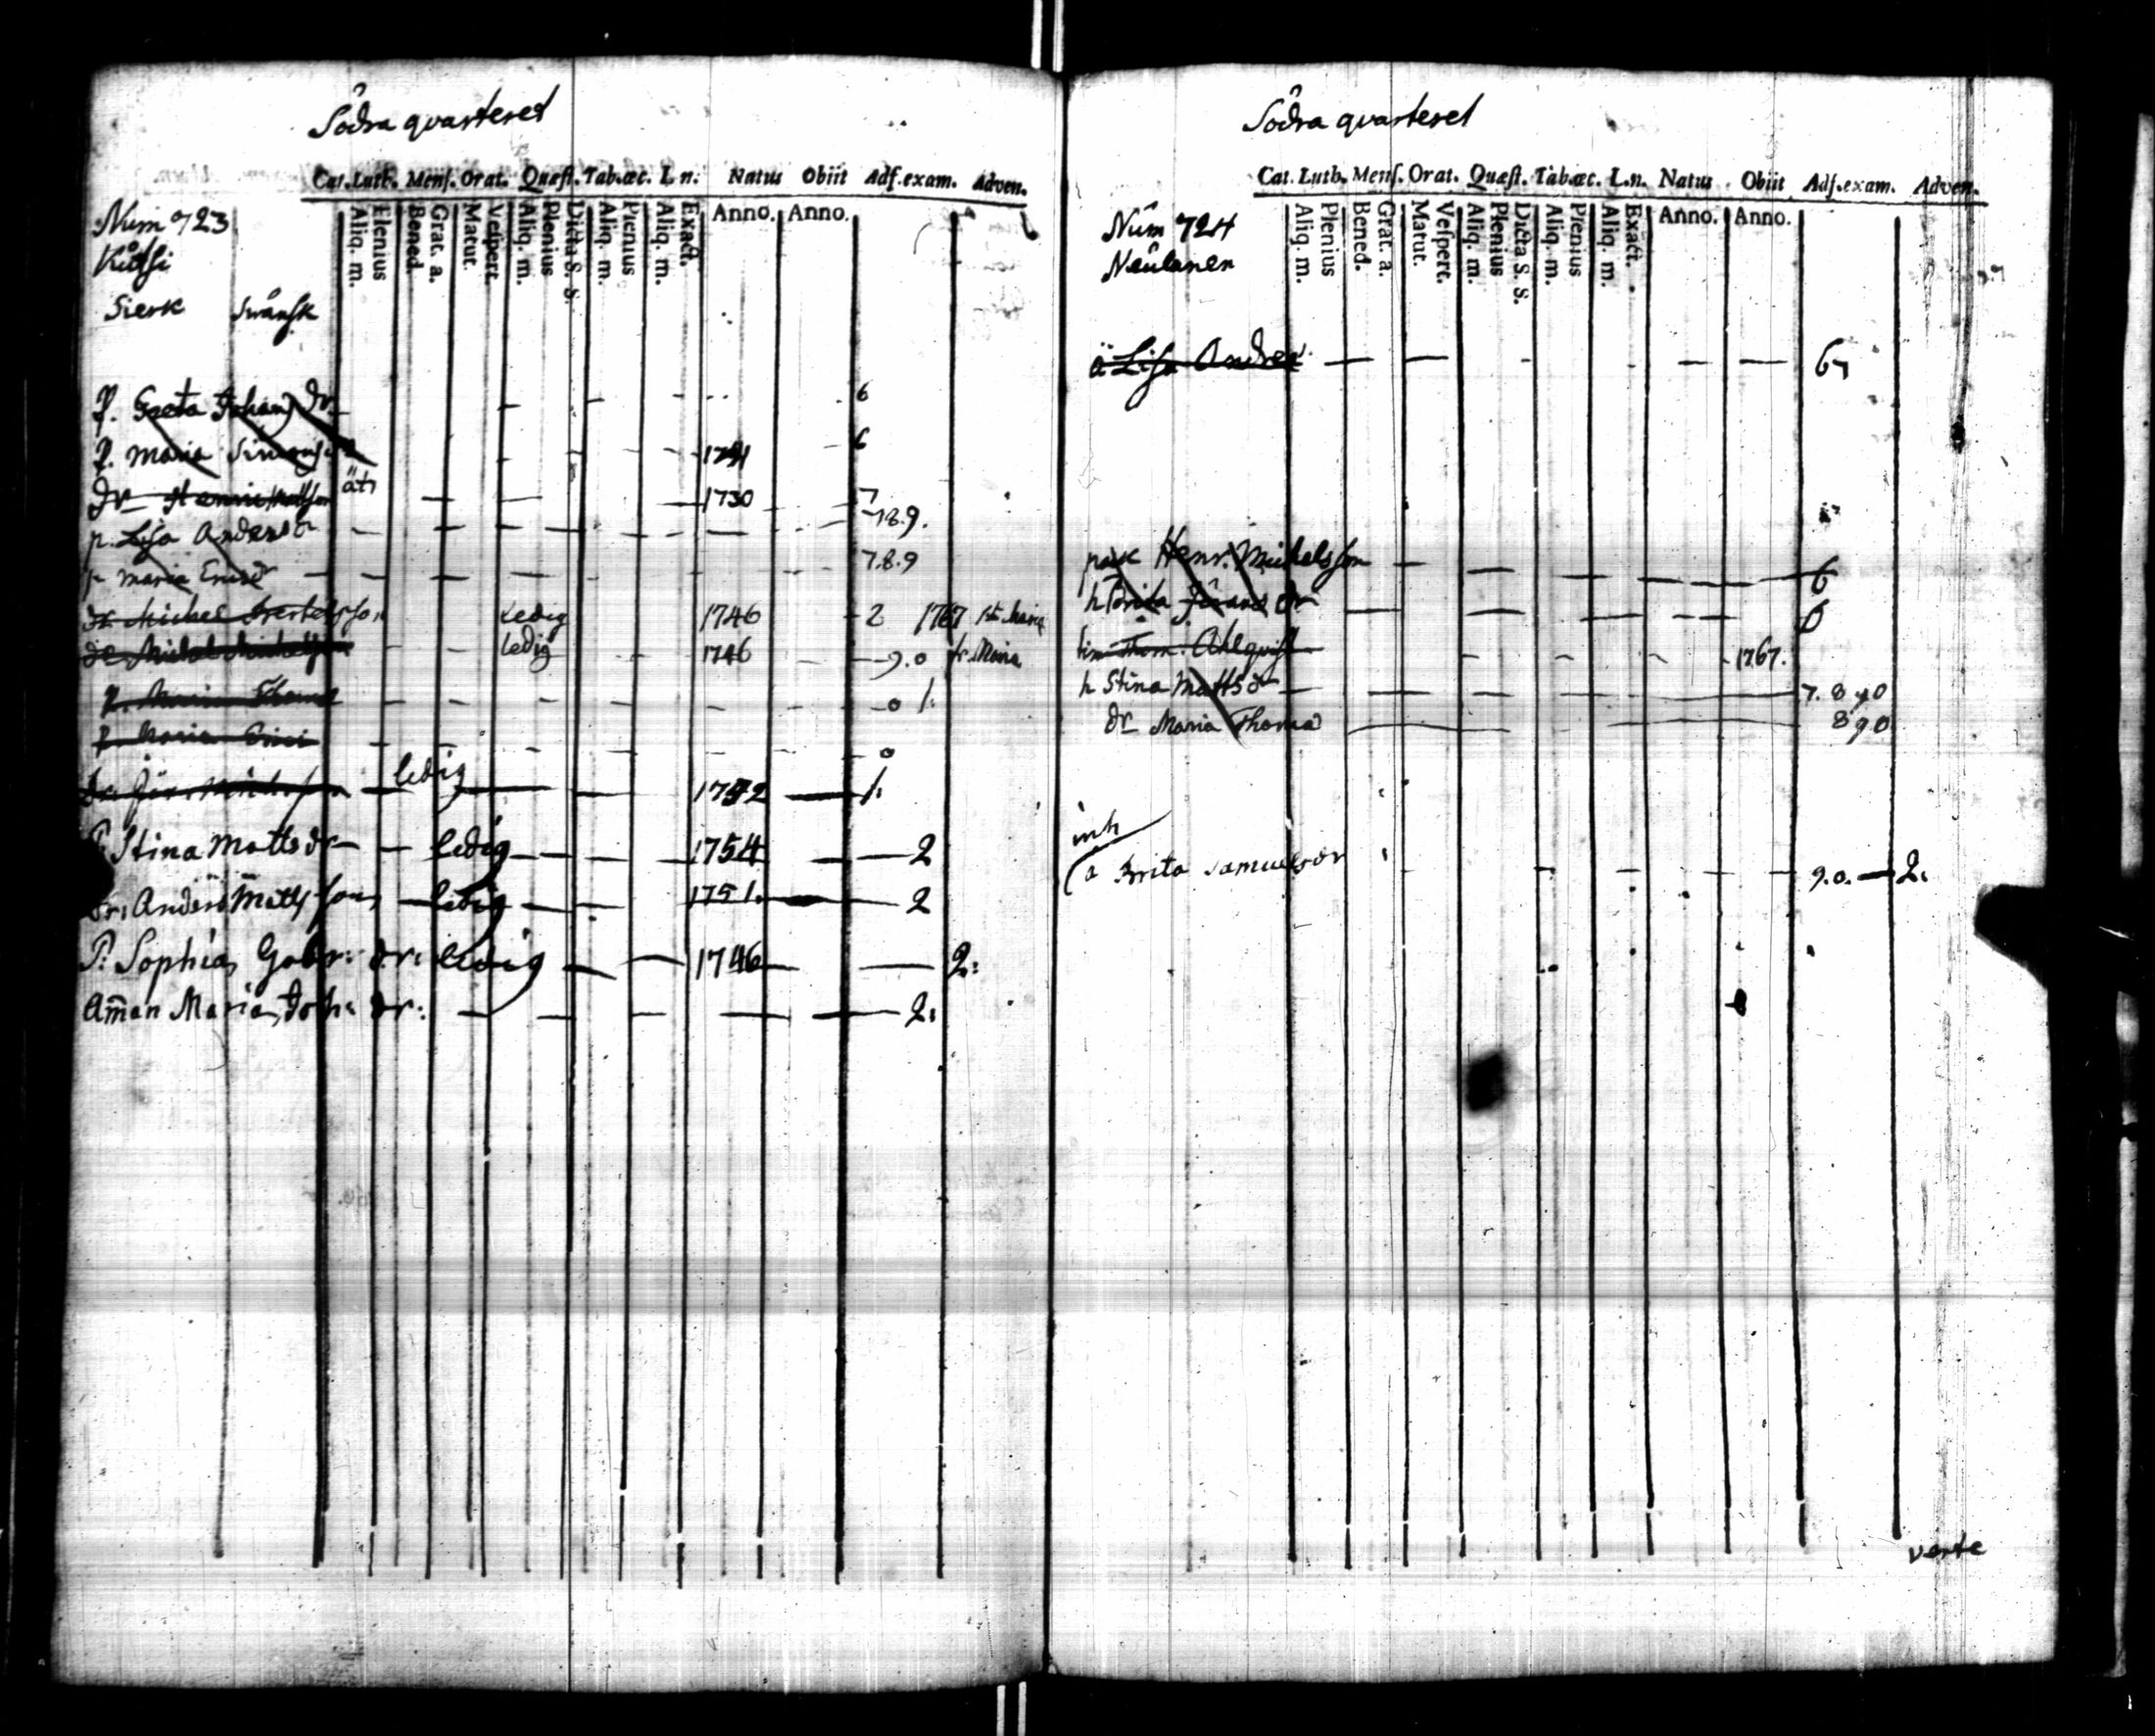 Södra quarteret
Cat. Luth. Mens. Orat. Quæst. Tab. œc. L. n. Natus Obiit Adf. exam. Adven.
Aliq. m. Plenius Bened. Grat. a. Matut. Vespert. Aliq. m. Plenius Dicta S. S. Aliq. m. Plenius Aliq. m. Exact. Anno. Anno.
Num 723
Sierk Swänsk
P. Greta Johans dr 6
P. Maria Simons 6
dr 1730 7
p. Lisa Anders dr 7 8.9.
p Maria Erics dr 7.8.9
dr Michel Bertelsson Ledig 1746 2 1767
dr Michel Michelsson ledig 1746 9.0 fr. Maria
P. Maria Thoms 0 1.
P. Maria Erici 0
dr. Jör. Michelsson ledig 1752 1.
P. Stina Matts dr ledig 1754 2
dr. Anders Matts son ledig 1751. 2
P. Sophia Gabr: dr: ledig 1746 2:
Am̄an Maria Joh: dr: 2:
Södra quarteret
Cat. Luth. Mens. Orat. Quæst. Tab. œc. L. n. Natus Obiit Adf. exam. Adven.
Aliq. m. Plenius Bened. Grat. a. Matut. Vespert. Aliq. m. Plenius Dicta S. S. Aliq. m. Plenius Aliq. m. Exact. Anno. Anno.
Num 724
Neulanen
Lisa Anders 67
Henr. Michelsson 6
h Brita Jörans dr 6
Thom. Ahlqvist 1767.
h Stina Matts dr 7. 8 9 0
dr Maria Thoms 8 9 0
inh
a Brita Samuelsdr 9.0. 2.
verte